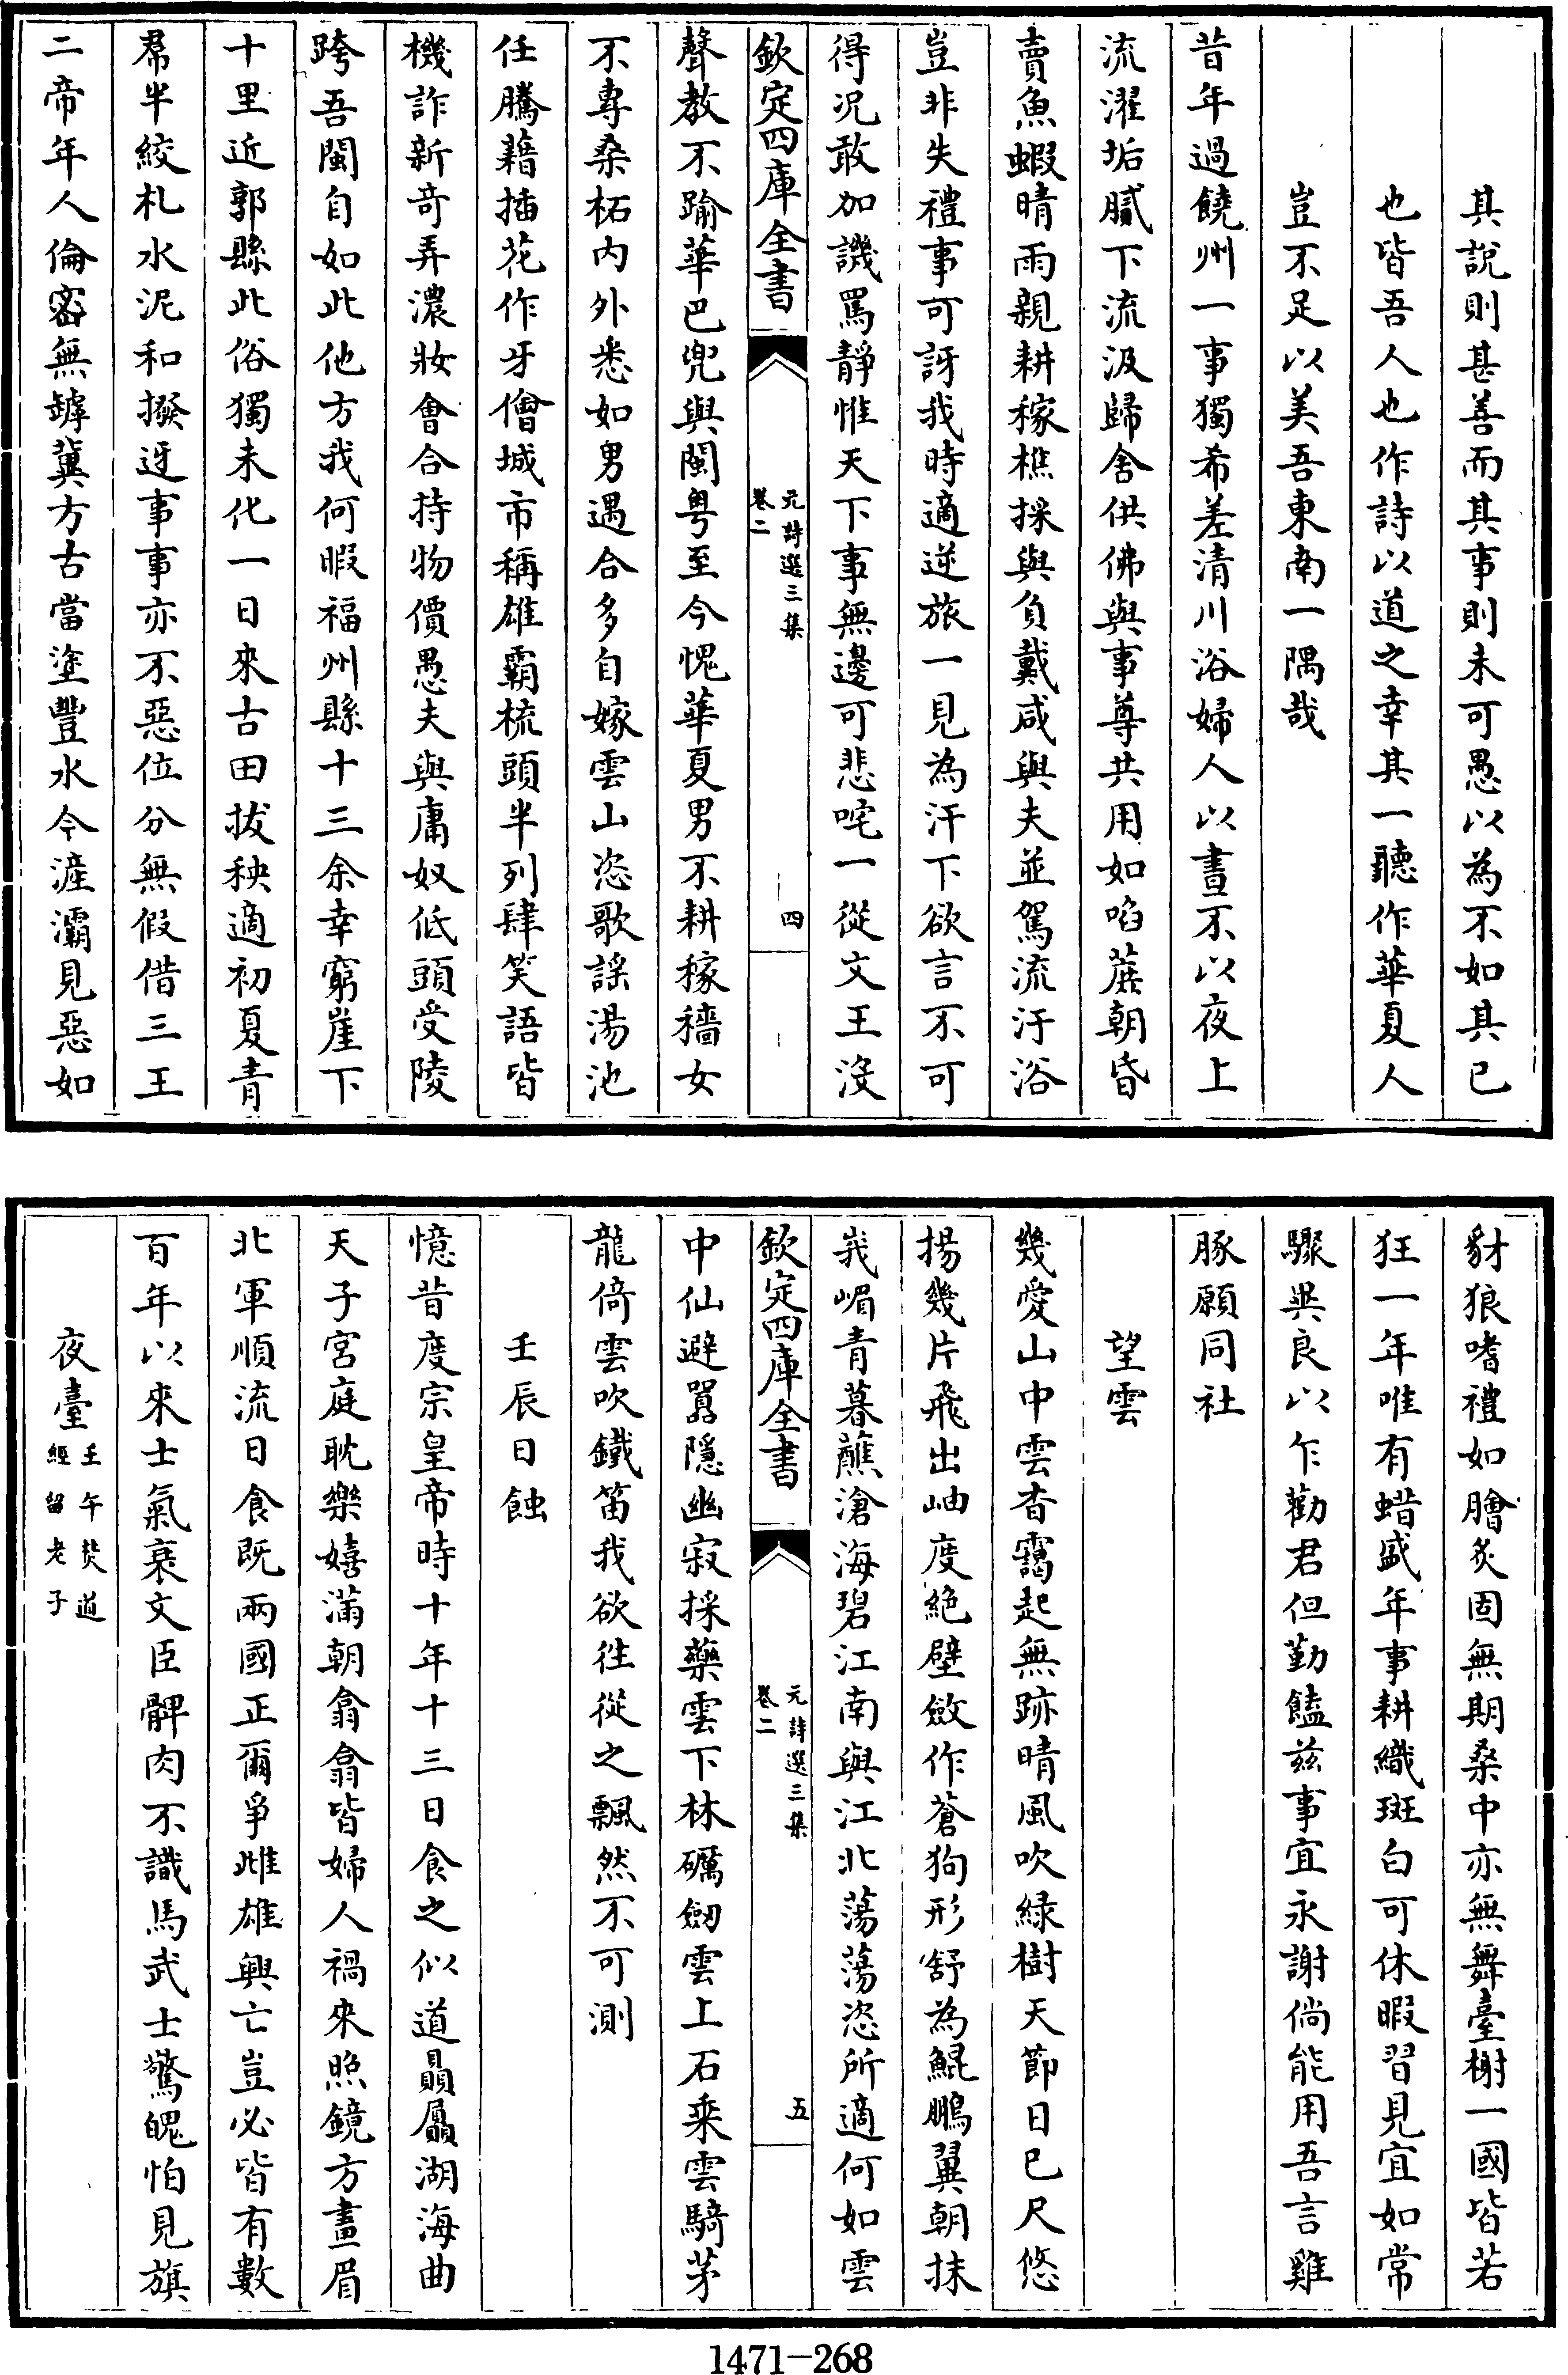 其說則甚善而其事則未可愚以為不如其已
也皆吾人也作詩以道之幸其一聽作華夏人
豈不足以美吾東南一隅哉
昔年過饒州一事獨希差清川浴婦人以晝不以夜上
流濯垢膩下流汲歸舍供佛與事尊共用如啗蔗朝昏
賣魚蝦晴雨親耕稼樵採與負戴咸與夫並駕流汙浴
豈非失禮事可訝我時適逆旅一見為汗下欲言不可
得况敢加譏罵靜惟天下事無邊可悲咤一從文王沒
欽定四庫全書
元詩選三集
卷二
四
聲教不踰華巴兜與閩粤至今愧華夏男不耕稼穡女
不專桑柘内外悉如男遇合多自嫁雲山恣歌謡湯池
任騰藉插花作牙儈城市稱雄霸梳頭半列肆笑語皆
機詐新奇弄濃妝會合持物價愚夫與庸奴低頭受陵
跨吾閩自如此他方我何暇福州縣十三余幸窮崖下
十里近郭縣此俗獨未化一日來古田拔秧適初夏青
帬半絞札水泥和撥迓事事亦不惡位分無假借三王
二帝年人倫密無罅冀方古當塗豐水今滻灞見惡如
豺狼嗜禮如膾炙固無期桑中亦無舞臺榭一國皆若
狂一年唯有蜡盛年事耕織斑白可休暇習見宜如常
驟與良以乍勸君但勤饁兹事宜永謝倘能用吾言雞
豚願同社
望雲
幾愛山中雲杳靄起無跡晴風吹綠樹天節日已尺悠
揚幾片飛出岫度絶壁斂作蒼狗形舒為鯤鵬翼朝抹
峩嵋青暮蘸滄海碧江南與江北蕩蕩恣所適何如雲
欽定四庫全書
元詩選三集
卷二
五
中仙避囂隱幽寂採藥雲下林礪劒雲上石乘雲騎茅
龍倚雲吹鐵笛我欲往從之飄然不可測
壬辰日蝕
憶昔度宗皇帝時十年十三日食之似道贔屭湖海曲
天子宮庭耽樂嬉滿朝翕翕皆婦人禍來照鏡方畫眉
北軍順流日食既兩國正爾爭雌雄興亡豈必皆有數
百年以來士氣衰文臣髀肉不識馬武士驚魄怕見旗
夜臺
壬午焚道
經留老子
1471-268